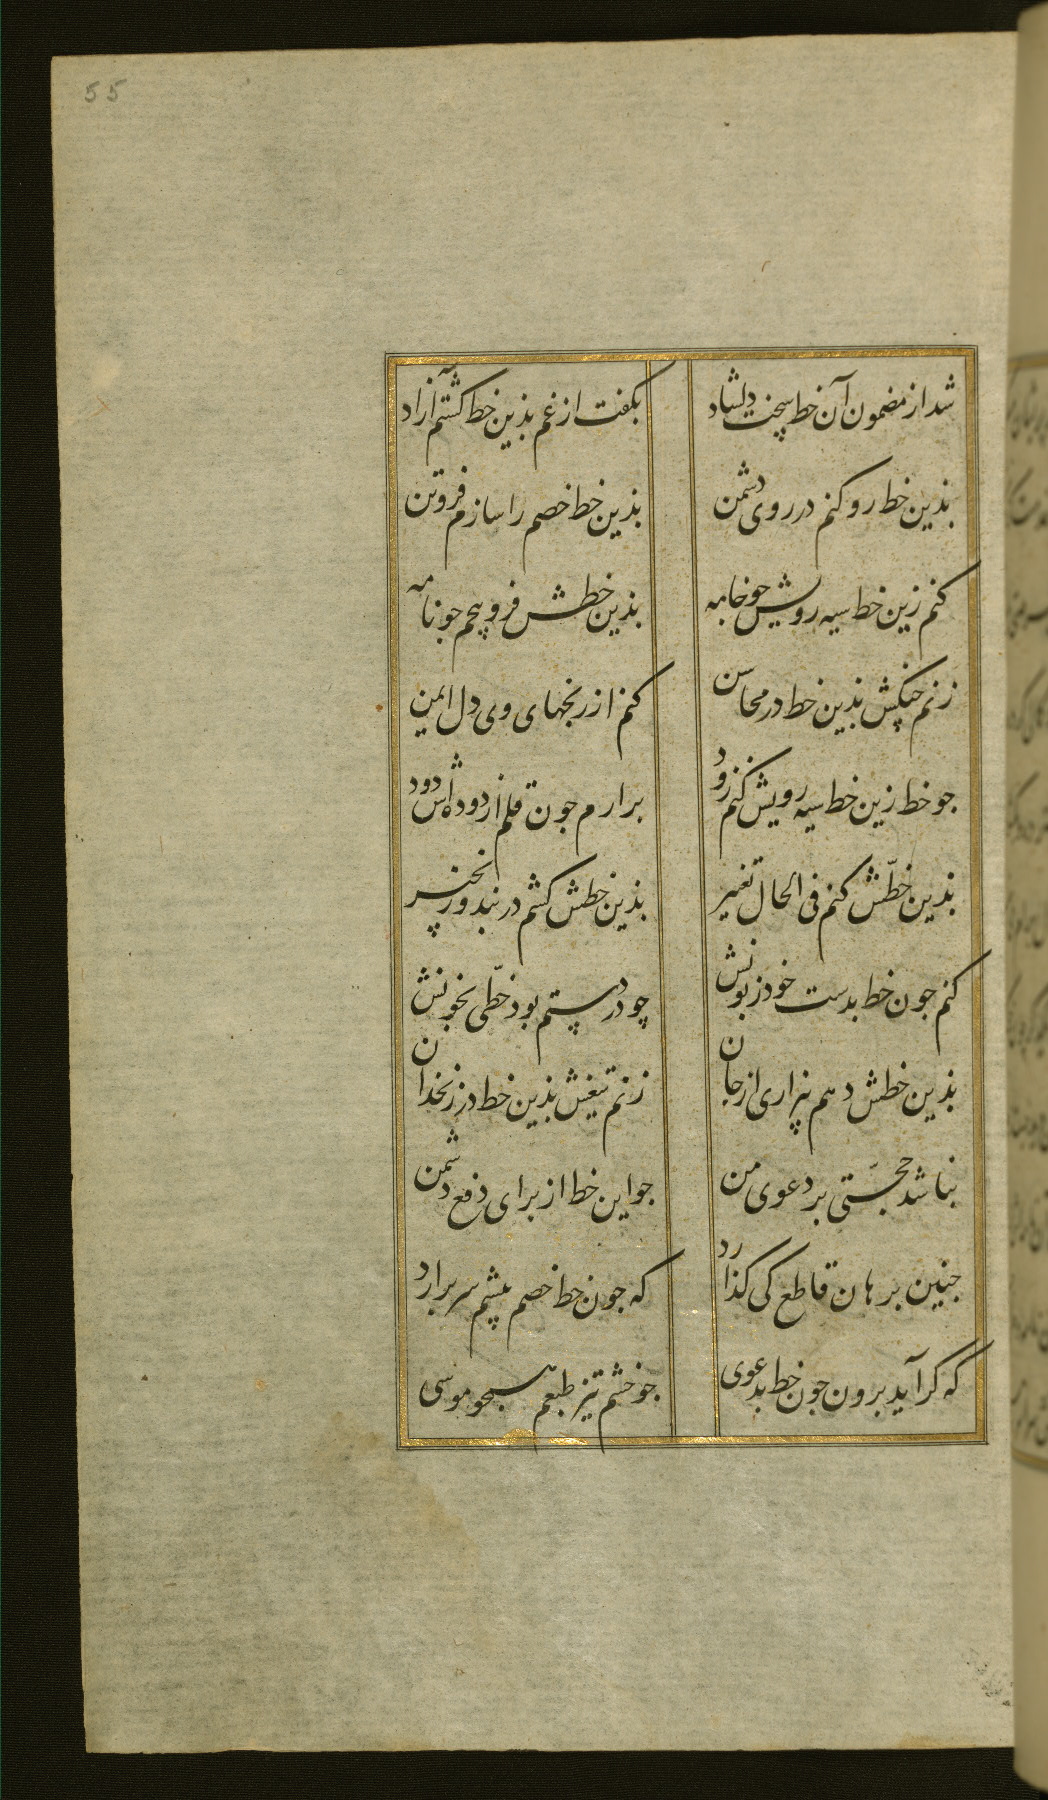 55
شد از مضمون آن خط سخت دلشاد
بگفت از غم بذین خط گشتم آزاد
بذین خط رو کنم در روی دشمن
بذین خط خصم را سازم فروتن
کنم زین خط سیه رویش جو خامه
بذین خطش فرو پیچم جو نامه
زنم چنگش بذین خط در محاسن
کنم از رنجهای وی دل ایمن
جو خط زین خط سیه رویش کنم زود
برارم جون قلم از دوده‌اش دود
بذین خطّش کنم فی الحال تغییر
بذین خطش کشم در بند و زنجیر
کنم جون خط بدست خود زبونش
چو در دستم بود خطّی بخونش
بذین خطش دهم بیزاری از جان
زنم تیغش بذین خط در زنخدان
نباشد حجّتی بر دعوی من
جو این خط از برای دفع دشمن
جنین برهان قاطع کی گذارد
که جون خط خصم پیشم سر برارد
که گر آید برون جون خط بدعوی
جو خشم تیز طبعم همچو موسی